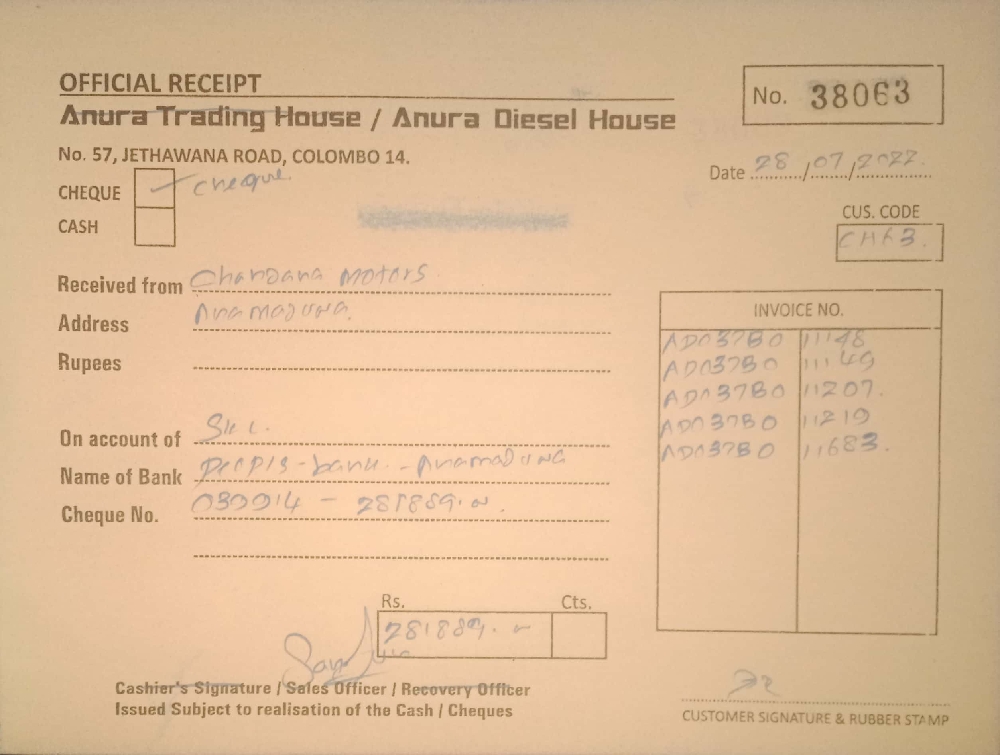 OFFICIAL RECEIPT
No. 38063
Anura Trading House / Anura Diesel House
No. 57, JETHAWANA ROAD, COLOMBO 14.
Date 28/07/2022.
CHEQUE cheque.
CASH
CUS. CODE
Received from Chandana Motors
Address Anamaduwa.
Rupees
INVOICE NO.
11148
11149
11207.
11219
11683.
On account of
Name of Bank peoples-bank - Anamaduwa
Cheque No. 281889.
Rs. Cts.
281889.
Cashier's Signature / Sales Officer / Recovery Officer
Issued Subject to realisation of the Cash / Cheques
CUSTOMER SIGNATURE & RUBBER STAMP